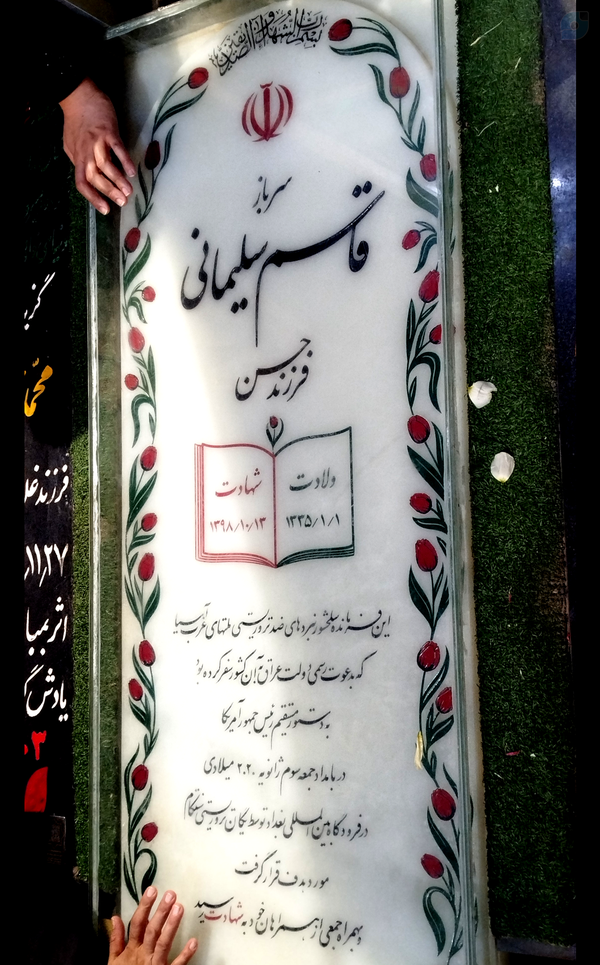 سرباز
قاسم سلیمانی
فرزند حسن
ولادت
۱۳۳۵/۱/۱
شهادت
۱۳۹۸/۱۰/۱۳
این فرمانده سلحشور نبردهای ضد تروریستی ملتهای غرب آسیا
که بدعوت رسمی دولت عراق به آن کشور سفر کرده بود
به دستور مستقیم رئیس جمهور آمریکا
در بامداد جمعه سوم ژانویه ۲۰۲۰ میلادی
در فرودگاه بین المللی بغداد توسط یگان تروریستی سنتکام
مورد هدف قرار گرفت
و بهمراه جمعی از همراهان خود به شهادت رسید
فرزند
۱۱٫۲۷
یادش